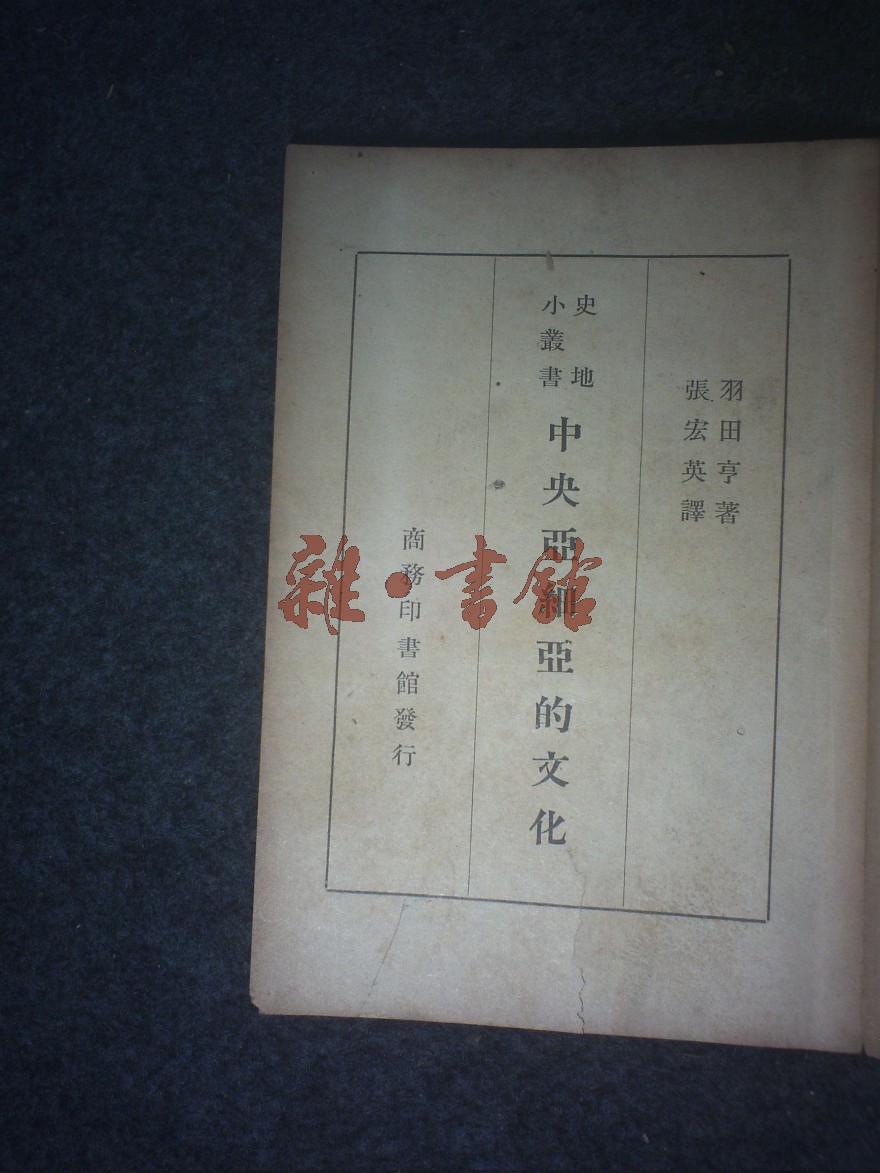 羽田亨著
張宏英譯
史地
小叢書
中央亞細亞的文化
商務印書館發行
雜·書館